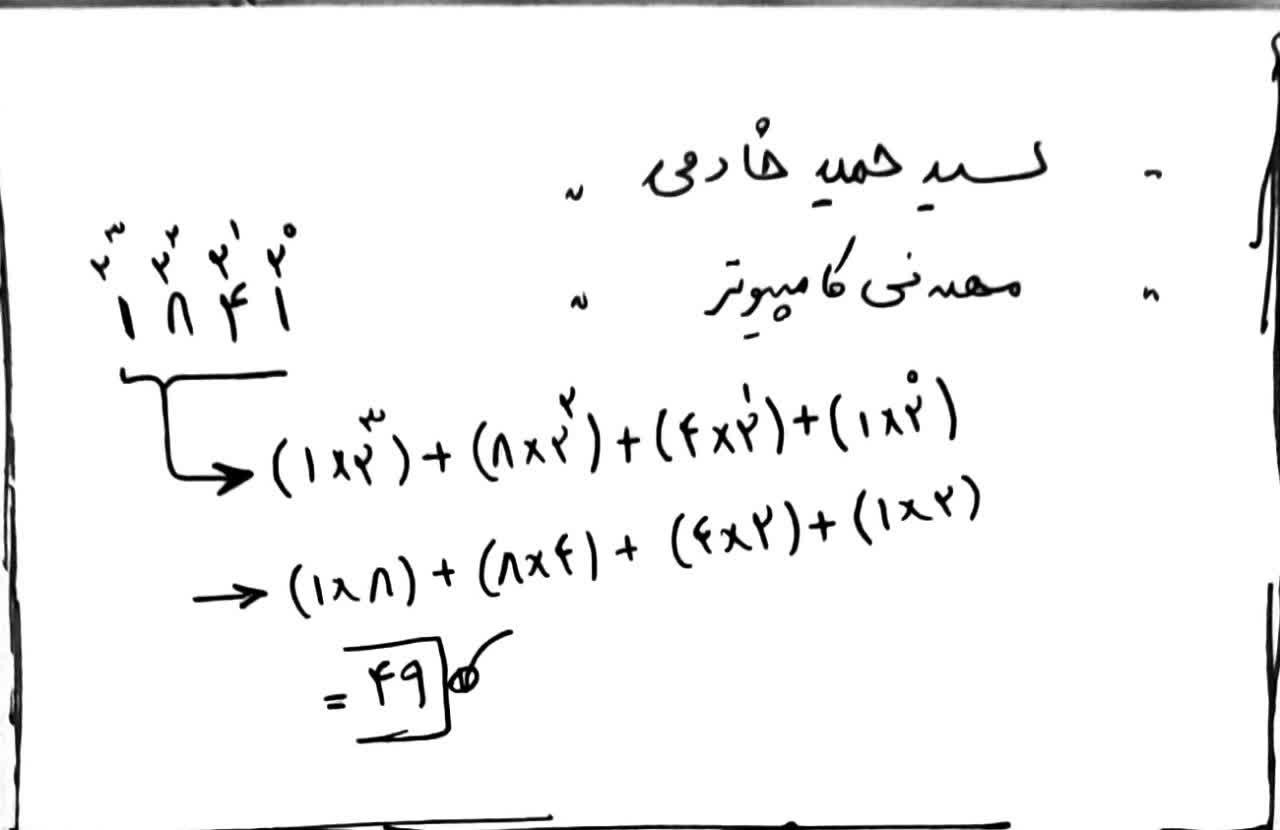 سید حمید خادمی
مهندسی کامپیوتر
۲^۳ ۲^۲ ۲^۱ ۲^۰
۱ ۸ ۴ ۱
(۱×۲^۳) + (۸×۲^۲) + (۴×۲^۱) + (۱×۲^۰)
→ (۱×۸) + (۸×۴) + (۴×۲) + (۱×۲)
= ۴۹